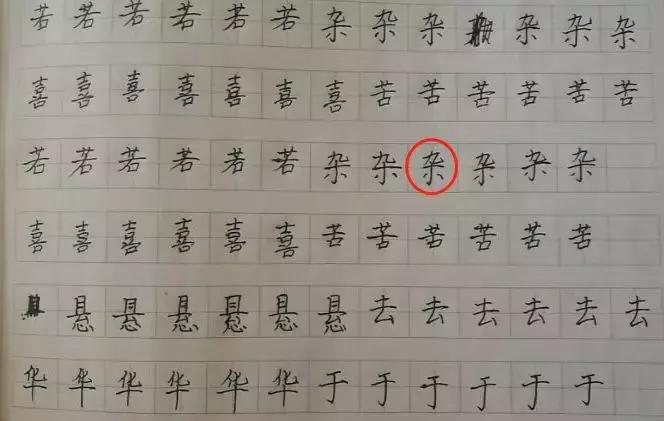 若若若若若若杂杂杂杂杂杂
喜喜喜喜喜喜喜苦苦苦苦苦苦
若若若若若若杂杂杂杂杂杂
喜喜喜喜喜喜苦苦苦苦苦苦
悬悬悬悬悬悬去去去去去去
华华华华华华于于于于于于